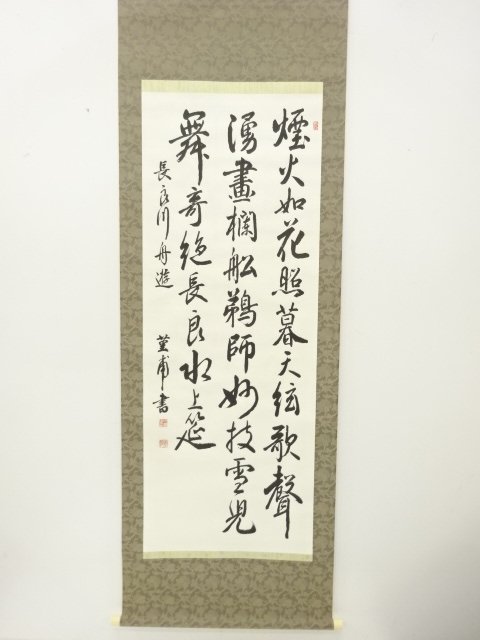 煙火如花照暮天絃歌聲
湧畫欄船鵜師妙技雪兒
舞奇絶長良水上筵
長良川舟遊
菫甫書